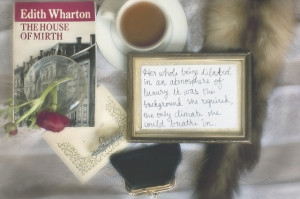 Edith Wharton
THE HOUSE
OF MIRTH
Her whole being dilated
in an atmosphere of
luxury. It was the
background she required,
the only climate she
could breathe in.